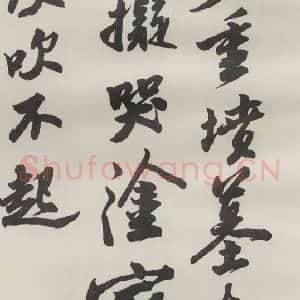 重墳墓
擬哭塗
吹不起
Shufawang.CN